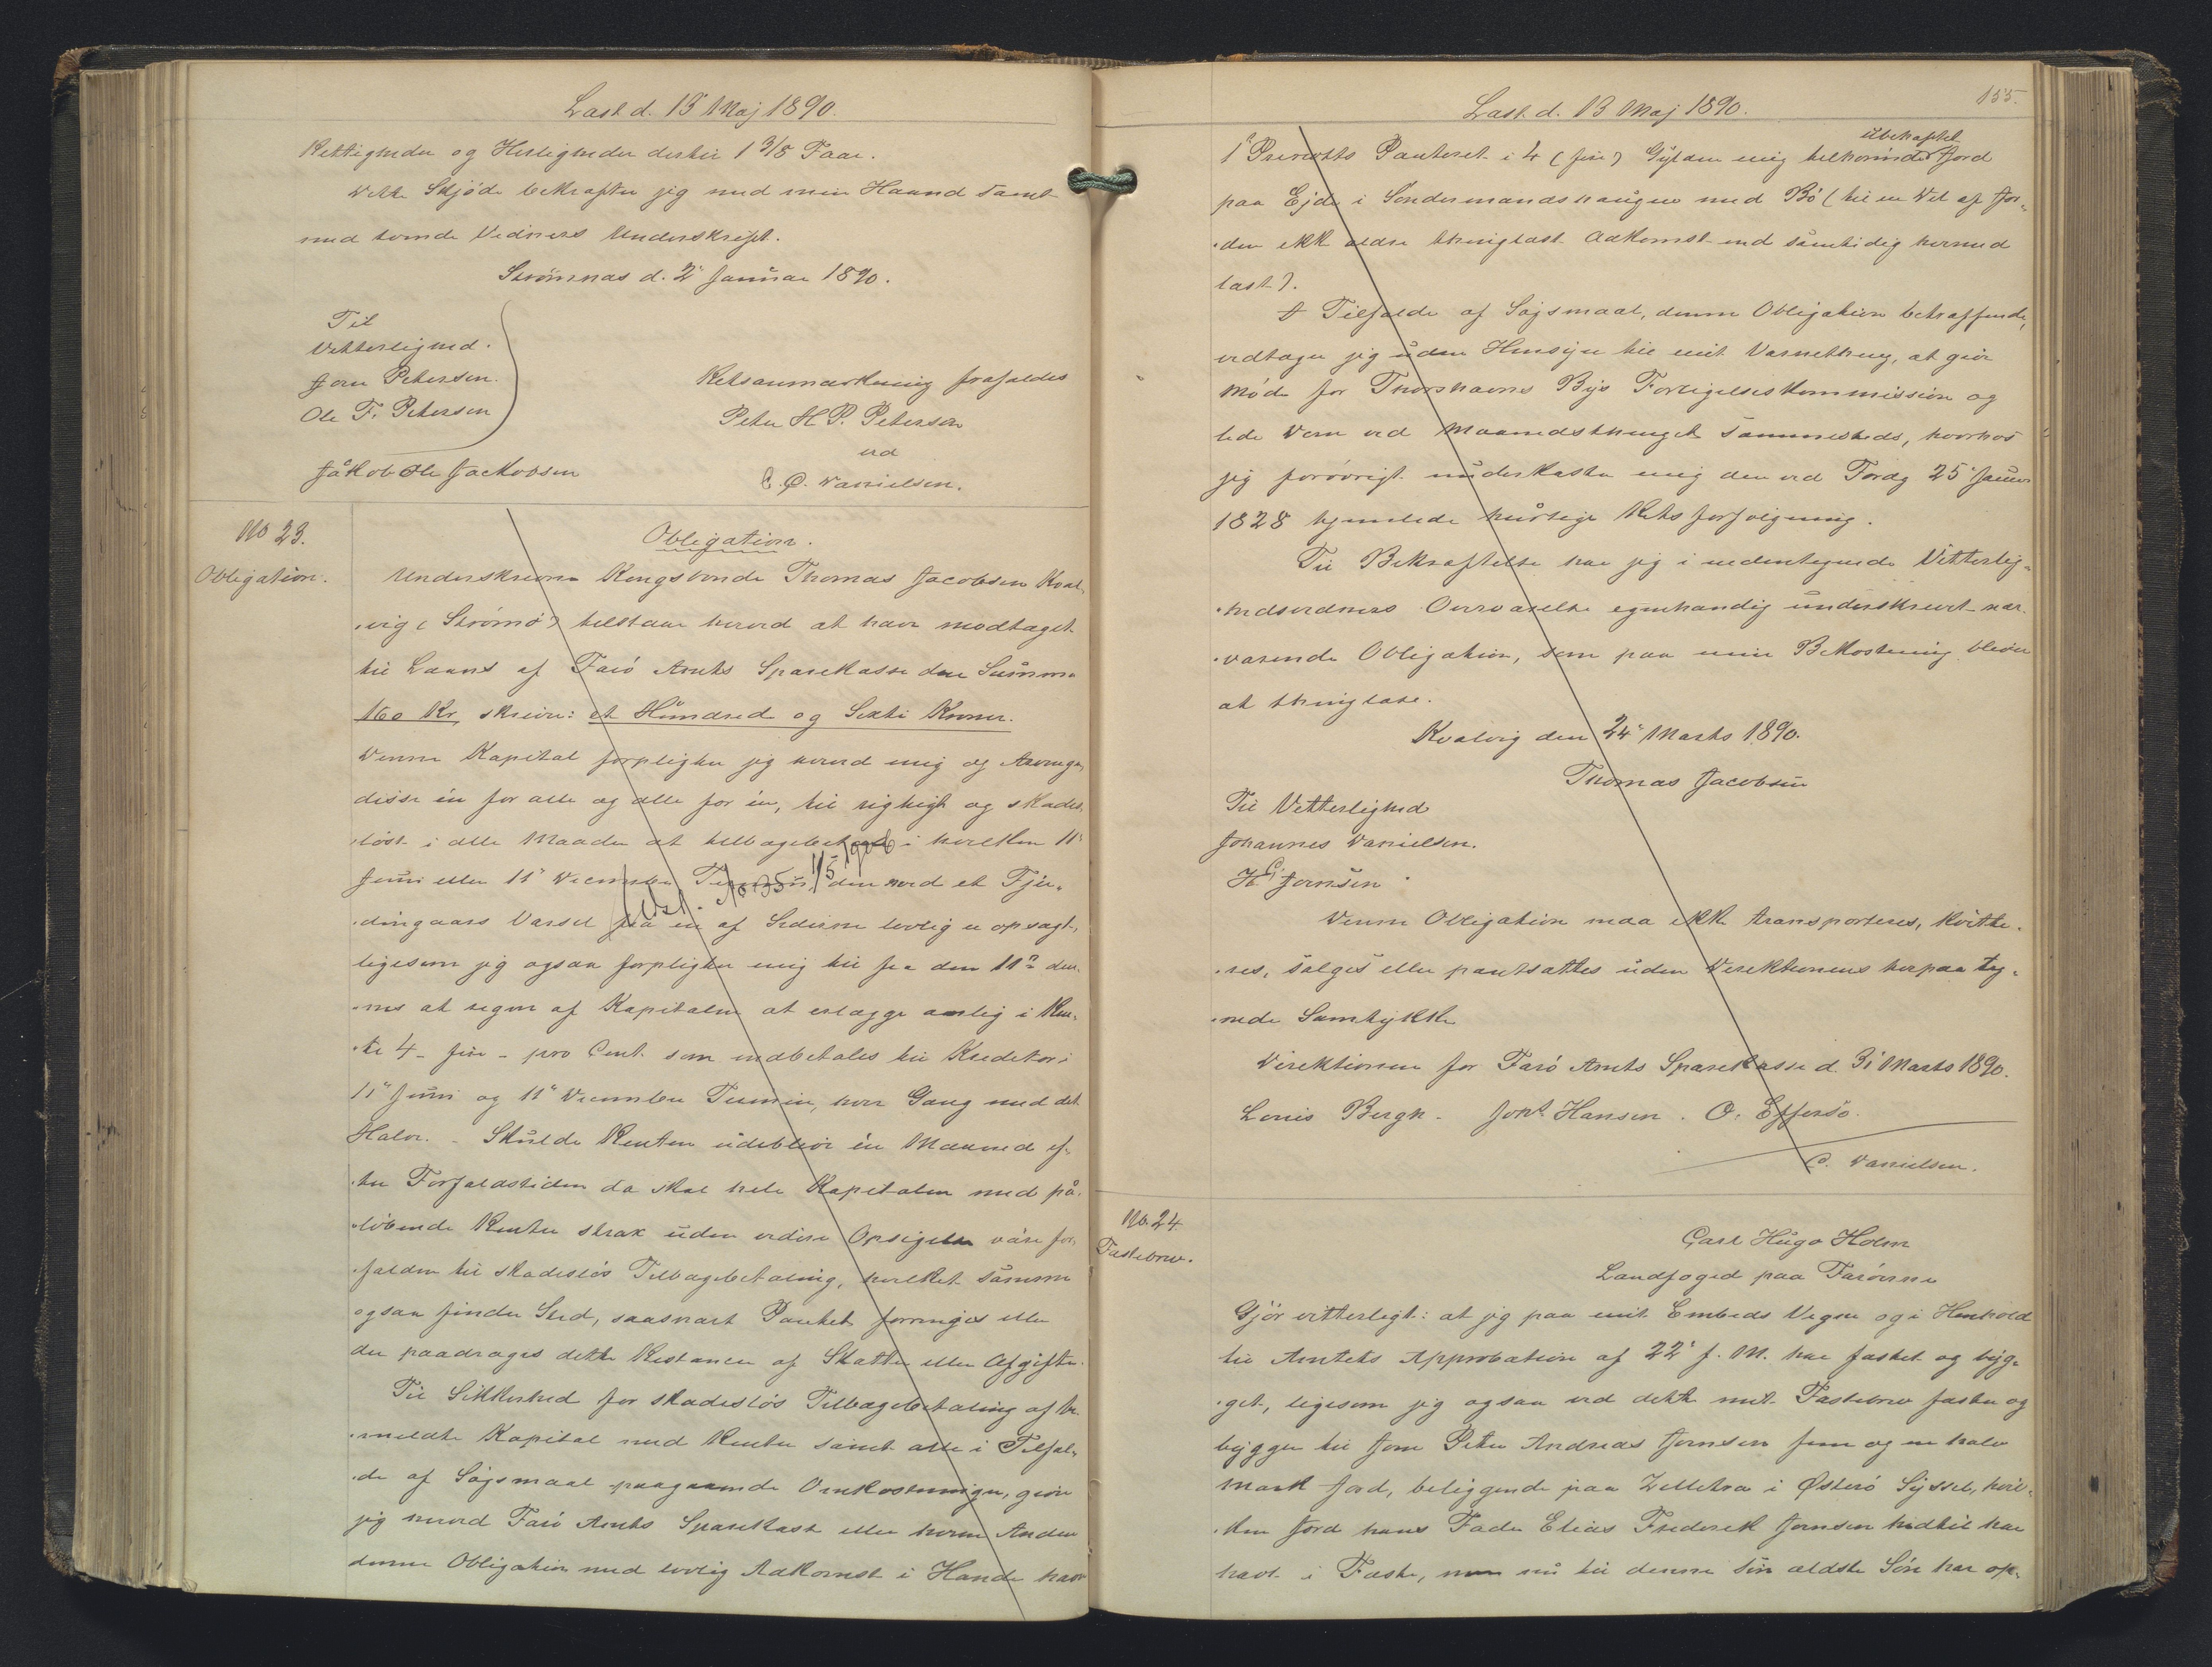 Læst d. 13 Maj 1890.
Rettigheder og Herligheder dertil 1 3/8 Faar.
Dette Skjöde bekræfter jeg med min Haand samt
med tvende Vidners Underskrift.
Strömnæs d. 2' Januar 1890.
Til
Vitterlighed.
Joen Petersen.
Ole F. Petersen
Jákob Ole Jackobsen
Retsanmærkning frafaldes
Peter H P. Petersen
ved
D. Danielsen.
No 23.
Obligation.
Obligation.
Underskrevne Kongsbonde Thomas Jacobsen Kval„
„vig (Strömö) tilstaar herved at have modtaget
til Laans af Færö Amts Sparekasse den Summa
160 Kr, skriver: et Hundred og Sexti Kroner.
Denne Kapital forpligter jeg herved mig og Arvinger
disse én for alle og alle for én, til rigtigt og skades„
„löst i alle Maader at tilbagebetale i hvilken 11'
Juni eller 11' December Termin den med et Fjer„
„dingaars Varsel fra en af Siderne lovlig er opsagt,
Udsl. No 35 11/5 1908
ligesom jeg ogsaa forpligter mig til fra den 11' den„
„nes at regne af Kapitalen at erlægge aarlig i Ren„
„te 4 - fire - pro Cent som indbetales til Kreditor i
11' Juni og 11' December Termin, hver Gang med det
Halve. - Skulde Renten udeblive én Maaned ef„
„ter Forfaldstiden da skal hele Kapitalen med på„
„löbende Renter strax uden videre Opsigelse være for„
„falden til skadeslös Tilbagebetaling, hvilket samme
ogsaa finder Sted, saasnart Pantet forringes eller
der paadrages dette Restancer af Skatter eller Afgifter.
Til Sikkerhed for skadeslös Tilbagebetaling af be„
„meldte Kapital med Renter samt alle i Tilfæl„
„de af Søgsmaal paagaaende Omkostninger, giver
jeg herved Færö Amts Sparekasse eller hvem Anden
denne Obligation med lovlig Adkomst i Hænde have
Læst d. 13 Maj 1890.
155.
1' Prioritets Panteret i 4 (fire) Gylden mig tilhørende ubehæftet Jord
paa Ejde i Sondermandshaugen med Bö (til en Del af Jor„
„den ikke ældre thinglæst Adkomst end samtidig hermed
læst).
I Tilfælde af Søgsmaal, denne Obligation betræffende,
vedtager jeg uden Hensyn til mit Værnething, at give
Möde for Thorshavns Bys Forligelseskommission og
lide Dom ved Maanedsthinget sammesteds, hvorhos
jeg forøvrigt underkaster mig den ved Fordg 25' Januar
1828 hjemlede hurtige Rets forfølgning.
Til Bekræftelse har jeg i nedentegnede Vitterlig„
„hedsvidners Overværelse egenhændig underskrevet nær„
„værende Obligation, som paa min Bekostning bliver
at thinglæse.
Kvalvig den 24' Marts 1890.
Thomas Jacobsen
Til Vitterlighed
Johannes Danielsen.
H C Joensen
Denne Obligation maa ikke transporteres, kvitte„
„res, sælges eller pantsættes uden Direktionens herpaa teg„
„nede Samtykke
Direktionen for Færö Amts Sparekasse d. 31 Marts 1890.
Louis Bergh. Johs Hansen. O. Effersö.
D. Danielsen.
No. 24
Fæstebrev.
Carl Hugo Holm
Landfoged paa Færöerne
Gjör vitterligt: at jeg paa mit Embeds Vegne og i Henhold
til Amtets Approbation af 22' f. M. har fæstet og byg„
„get, ligesom jeg ogsaa ved dette mit Fæstebrev fæster og
bygger til Joen Peter Andreas Joensen fem og en halv
Mark Jord, beliggende paa Zelletræ i Østerö Syssel, hvil„
„ken Jord hans Fader Elias Frederik Joensen hidtil har
havt i Fæste, men nu til denne sin ældste Sön har op„